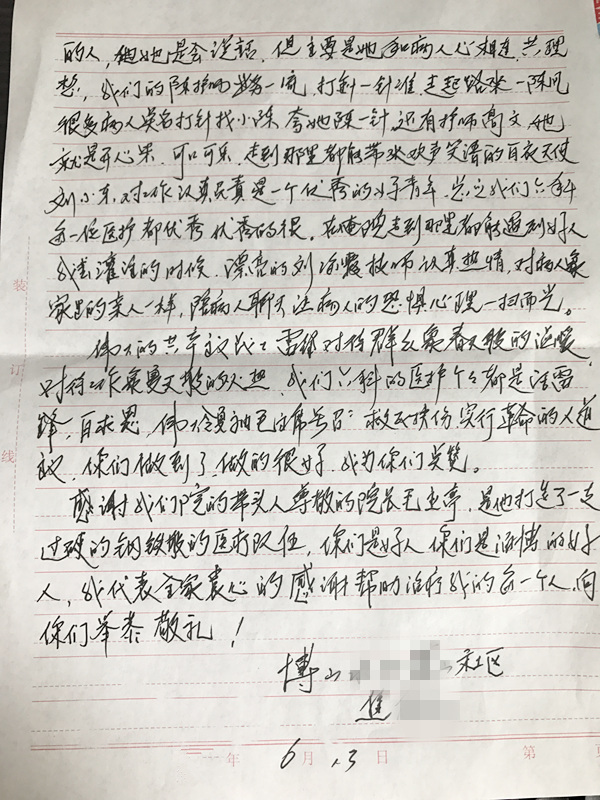 的人，她她是会说话，但主要是她和病人心相连，共理
想，我们的陈护师业务一流，打针一针准，走起路来一阵风
很多病人莫名打针找小陈，夸她陈一针，还有护师高文，她
就是开心果，可口可乐，走到那里都能带来欢声笑语的白衣天使
刘小东，对工作认真负责是一个优秀的好青年，总之我们六科
每一位医护都优秀优秀的很，在电院走到那里都能遇到好人
我去灌注的时候，漂亮的刘 霞技师认真热情，对病人象
家里的亲人一样，陪病人聊天让病人的恐惧心理一扫而光。
伟大的共产主义战士雷锋对待群众象春天般的温暖
对待工作象夏天般的火热，我们六科的医护个个都是活雷
锋，白求恩，伟大领袖毛主席号召：救死扶伤，实行革命的人道主
义，你们做到了，做的很好，我为你们点赞。
感谢我们院的带头人尊敬的院长毛 亭，是他打造了一支
过硬的钢铁般的医疗队伍，你们是好人你们是淄博的好
人，我代表全家衷心的感谢帮助治疗我的每一个人，向
你们举恭敬礼！
博山 社区
焦
年 6月13日 第 页
装
订
线